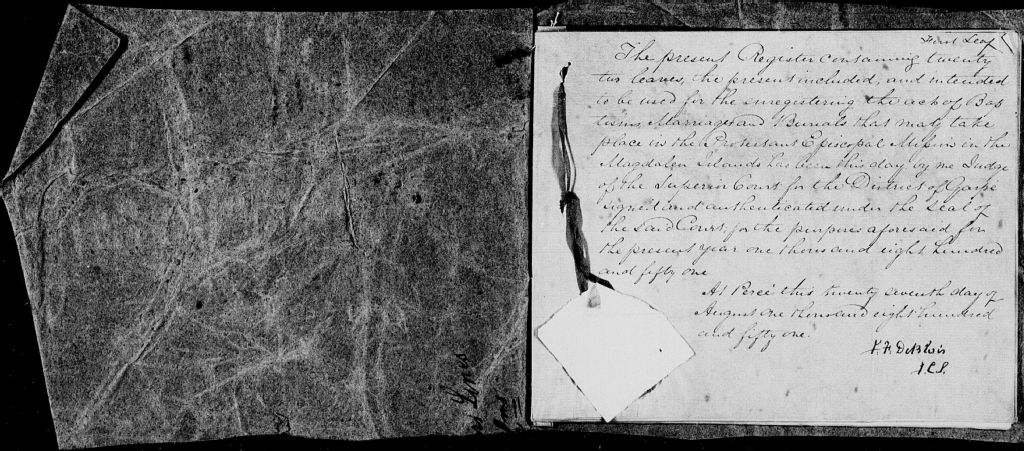 First Leaf
The present Register containing twenty
two leaves, the present included, and intended
to be used for the enregistering the acts of Bap
tisms, Marriages and Burials that may take
place in the Protestant Episcopal Mission in the
Magdalen Islands has been this day by me Judge
of the Superior Court for the District of Gaspé
signed and authenticated under the Seal of
the said Court, for the purposes aforesaid for
the present year one thousand eight hundred
and fifty one
At Percé this twenty seventh day of
August one thousand eight hundred
and fifty one.
DeBlois
J.C.S.